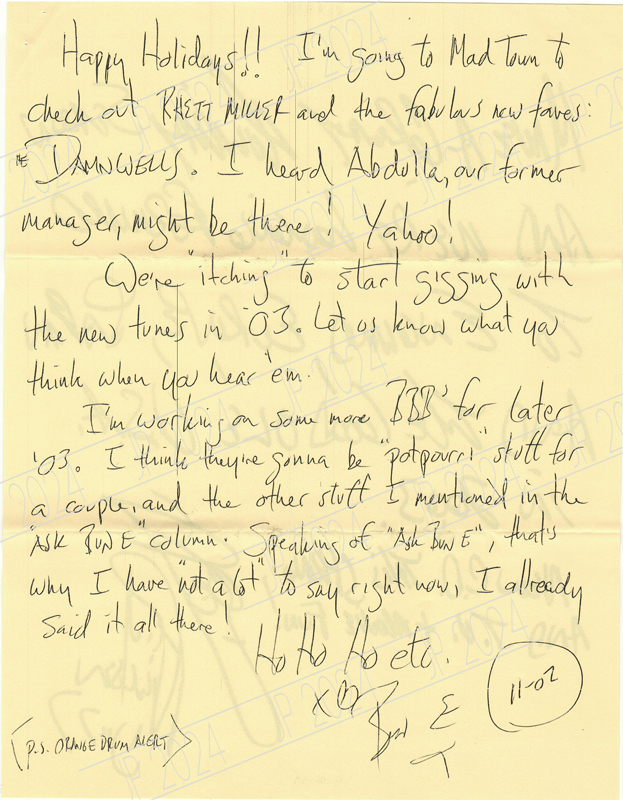 Happy Holidays!! I'm going to Mad Town to
check out RHETT MILLER and the fabulous new faves:
THE DAMNWELLS. I heard Abdulla, our former
manager, might be there! Yahoo!
We're "itching" to start gigging with
the new tunes in '03. Let us know what you
think when you hear 'em.
I'm working on some more BBB's for later
'03. I think they're gonna be "potpourri" stuff for
a couple, and the other stuff I mentioned in the
"ASK BUN E" column. Speaking of "ASK BUN E", that's
why I have "not a lot" to say right now, I allready
said it all there!
Ho Ho Ho etc.
XO
Bun E
11-02
(P.S. ORANGE DRUM ALERT)
JP 2024